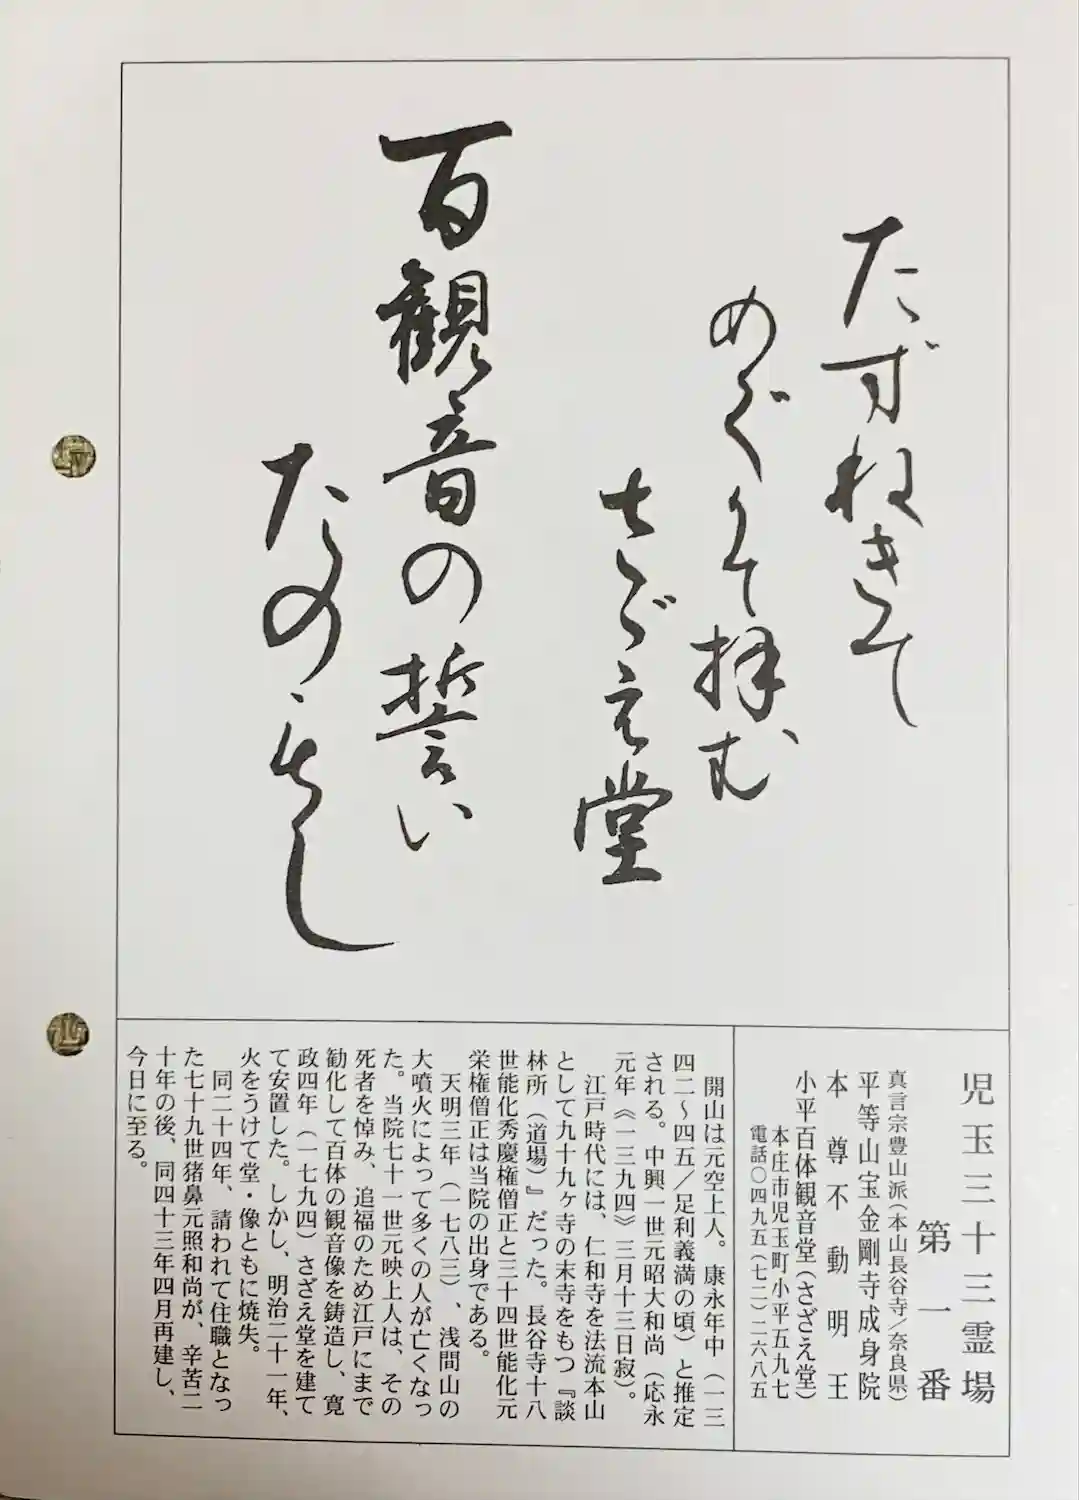 たずねきて
めぐりて拝む
さゞえ堂
百観音の誓い
たのもし
児玉三十三霊場
第一番
真言宗豊山派(本山長谷寺/奈良県)
平等山宝金剛寺成身院
本尊不動明王
小平百体観音堂(さざえ堂)
本庄市児玉町小平五九七
電話〇四九五(七二)二六八五
開山は元空上人。康永年中(一三
四二〜四五/足利義満の頃)と推定
される。中興一世元昭大和尚(応永
元年《一三九四》三月十三日寂)。
江戸時代には、仁和寺を法流本山
として九十九ヶ寺の末寺をもつ『談
林所(道場)』だった。長谷寺十八
世能化秀慶権僧正と三十四世能化元
栄権僧正は当院の出身である。
天明三年(一七八三)、浅間山の
大噴火によって多くの人が亡くなっ
た。当院七十一世元映上人は、その
死者を悼み、追福のため江戸にまで
勧化して百体の観音像を鋳造し、寛
政四年(一七九四)さざえ堂を建て
て安置した。しかし、明治二十一年、
火をうけて堂・像ともに焼失。
同二十四年、請われて住職となっ
た七十九世猪鼻元照和尚が、辛苦二
十年の後、同四十三年四月再建し、
今日に至る。